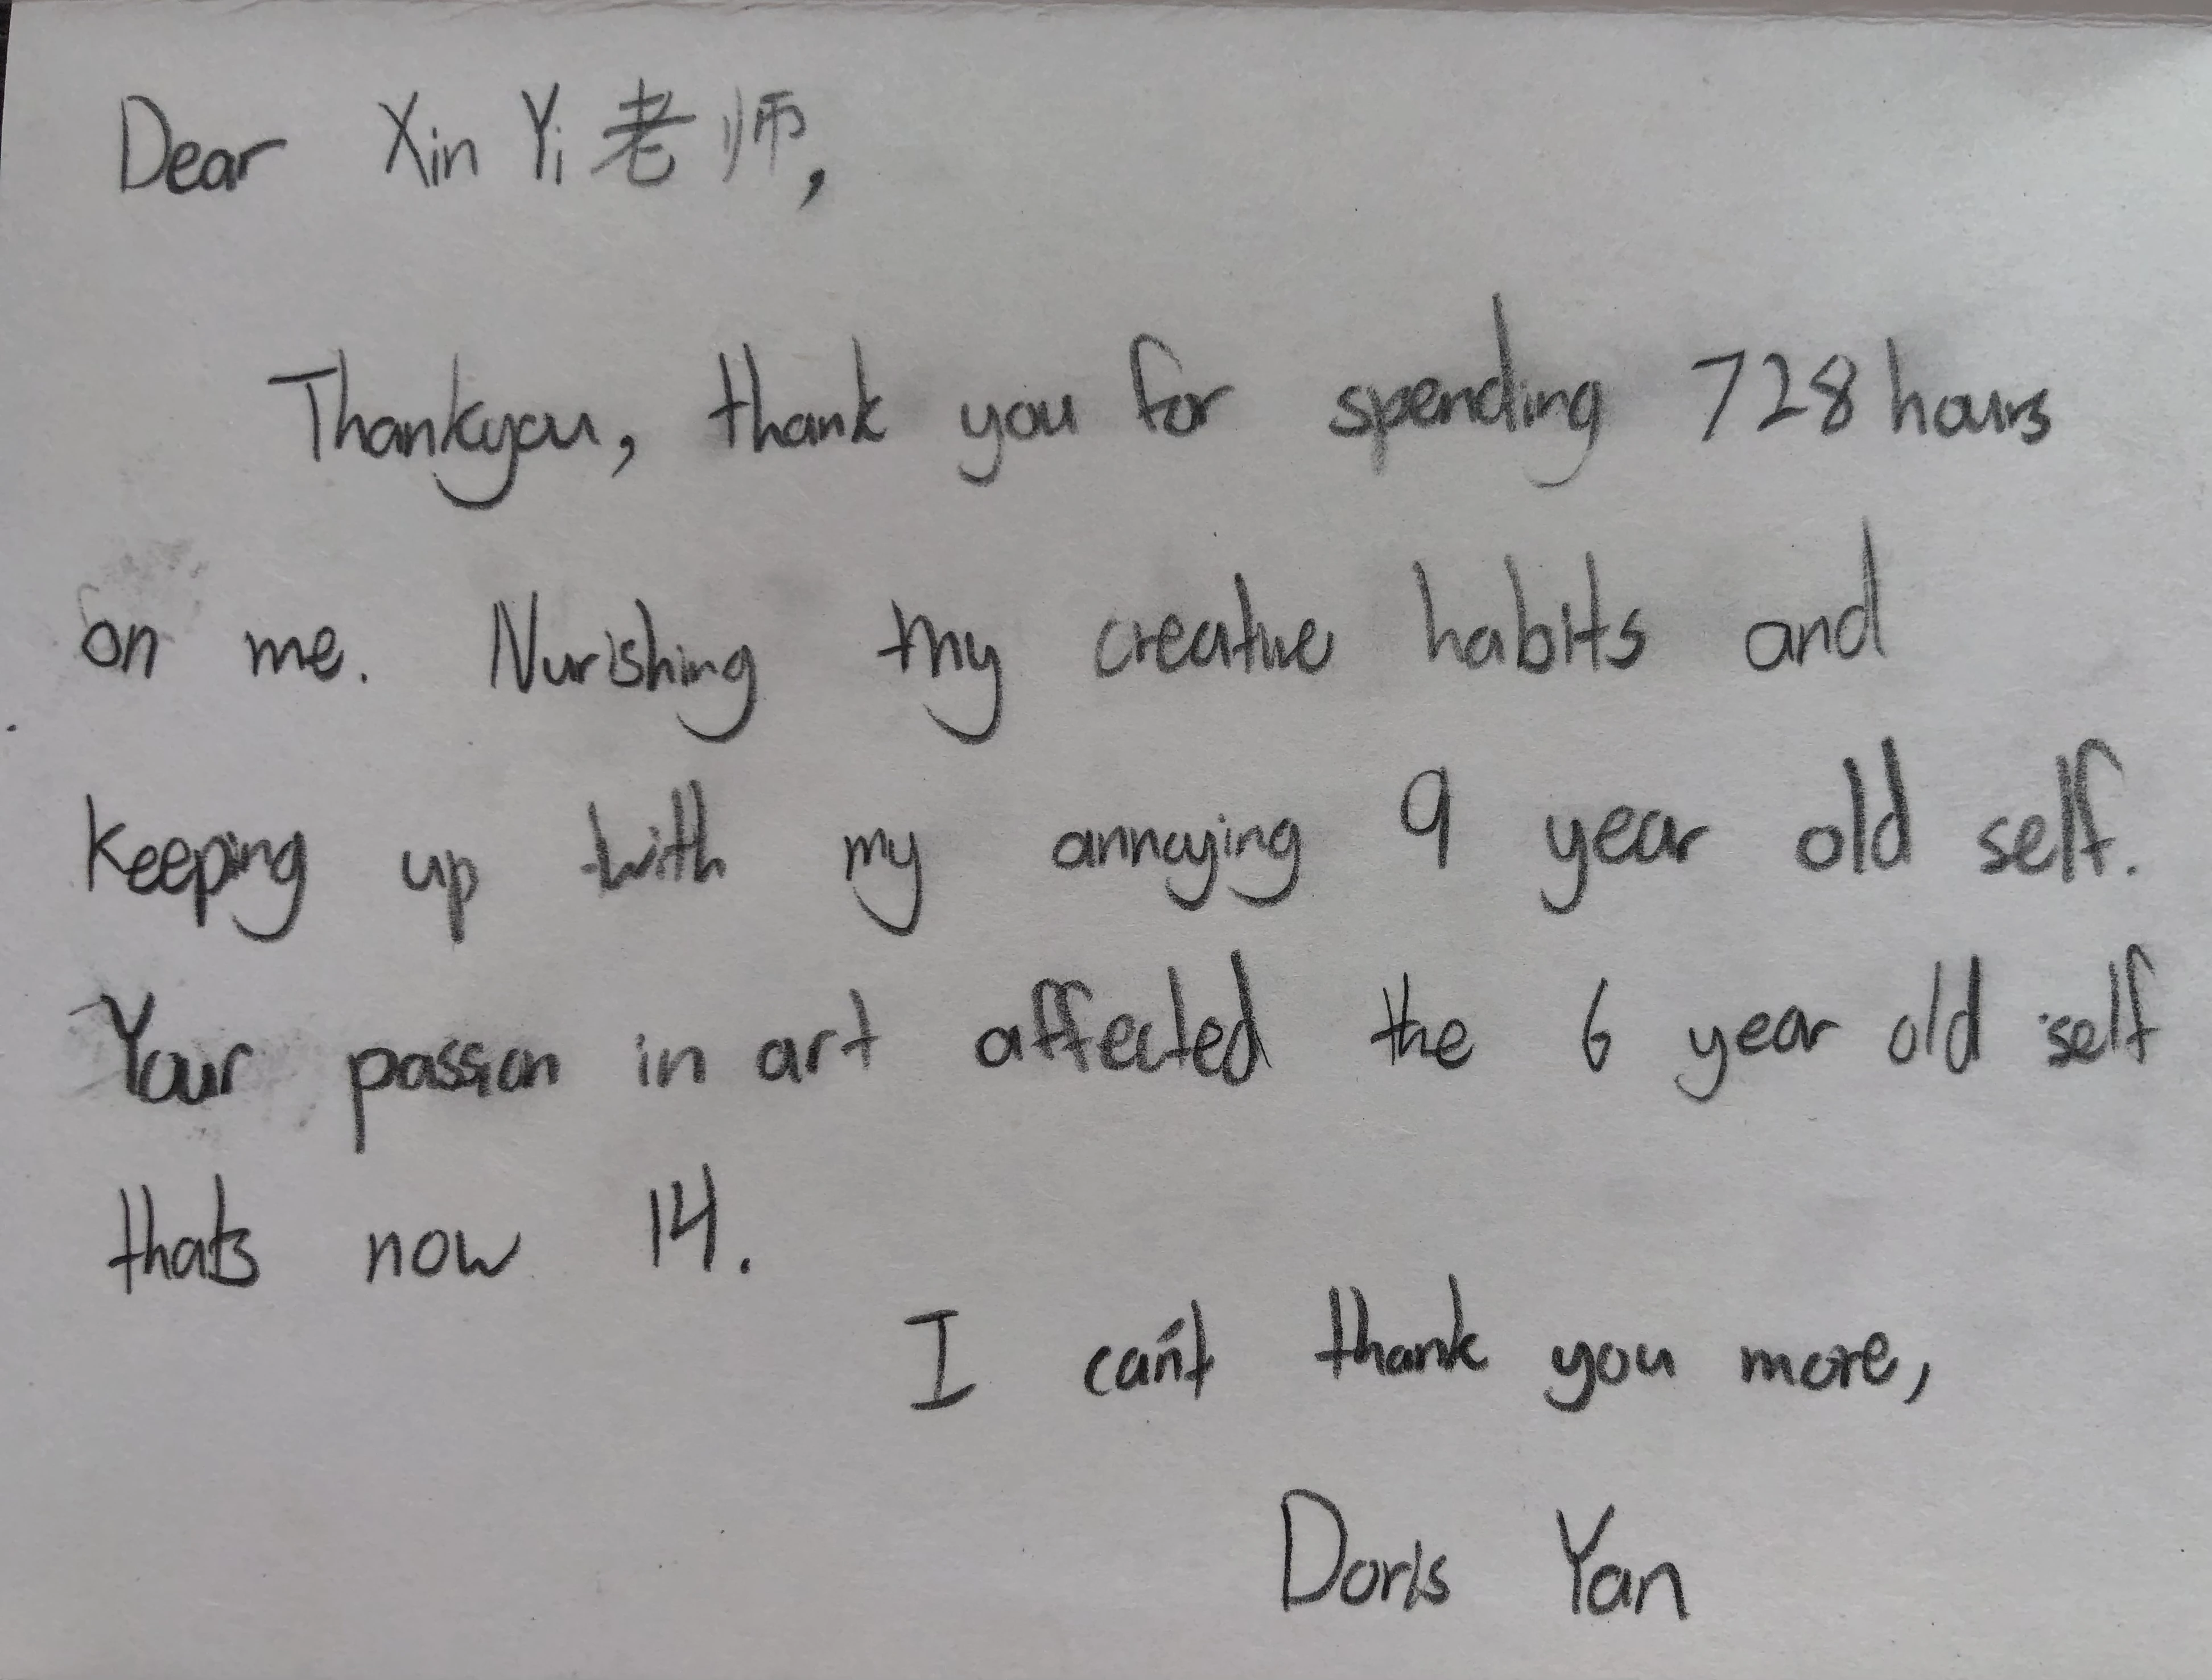 Dear Xin Yi 老师,
Thankyou, thank you for spending 728 hours
on me. Nurishing my creative habits and
keeping up with my annoying 9 year old self.
Your passion in art affected the 6 year old self
thats now 14.
I can't thank you more,
Doris Yan